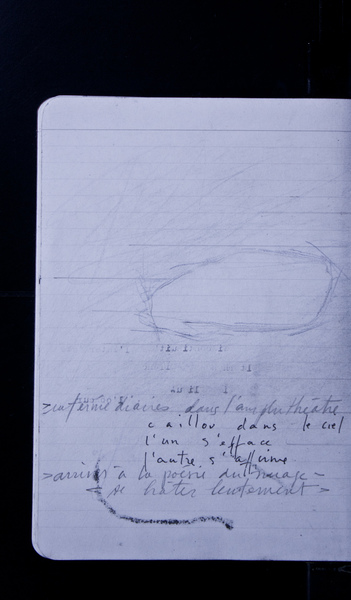 > intermédiaires dans l'amphithéâtre
caillou dans le ciel
l'un s'efface
l'autre s'affirme
> arriver à la poésie du nuage -
< se hâter lentement >